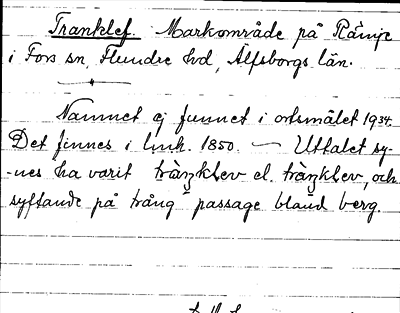 Tranklef. Markområde på Rämje
i Fors sn, Flundre hd, Älfsborgs län.
Namnet ej funnet i ortsmålet 1934.
Det finnes i lmh. 1850. — Uttalet sy-
-nes ha varit tràŋklev el. tràŋklev, och
syftande på trång passage bland berg.